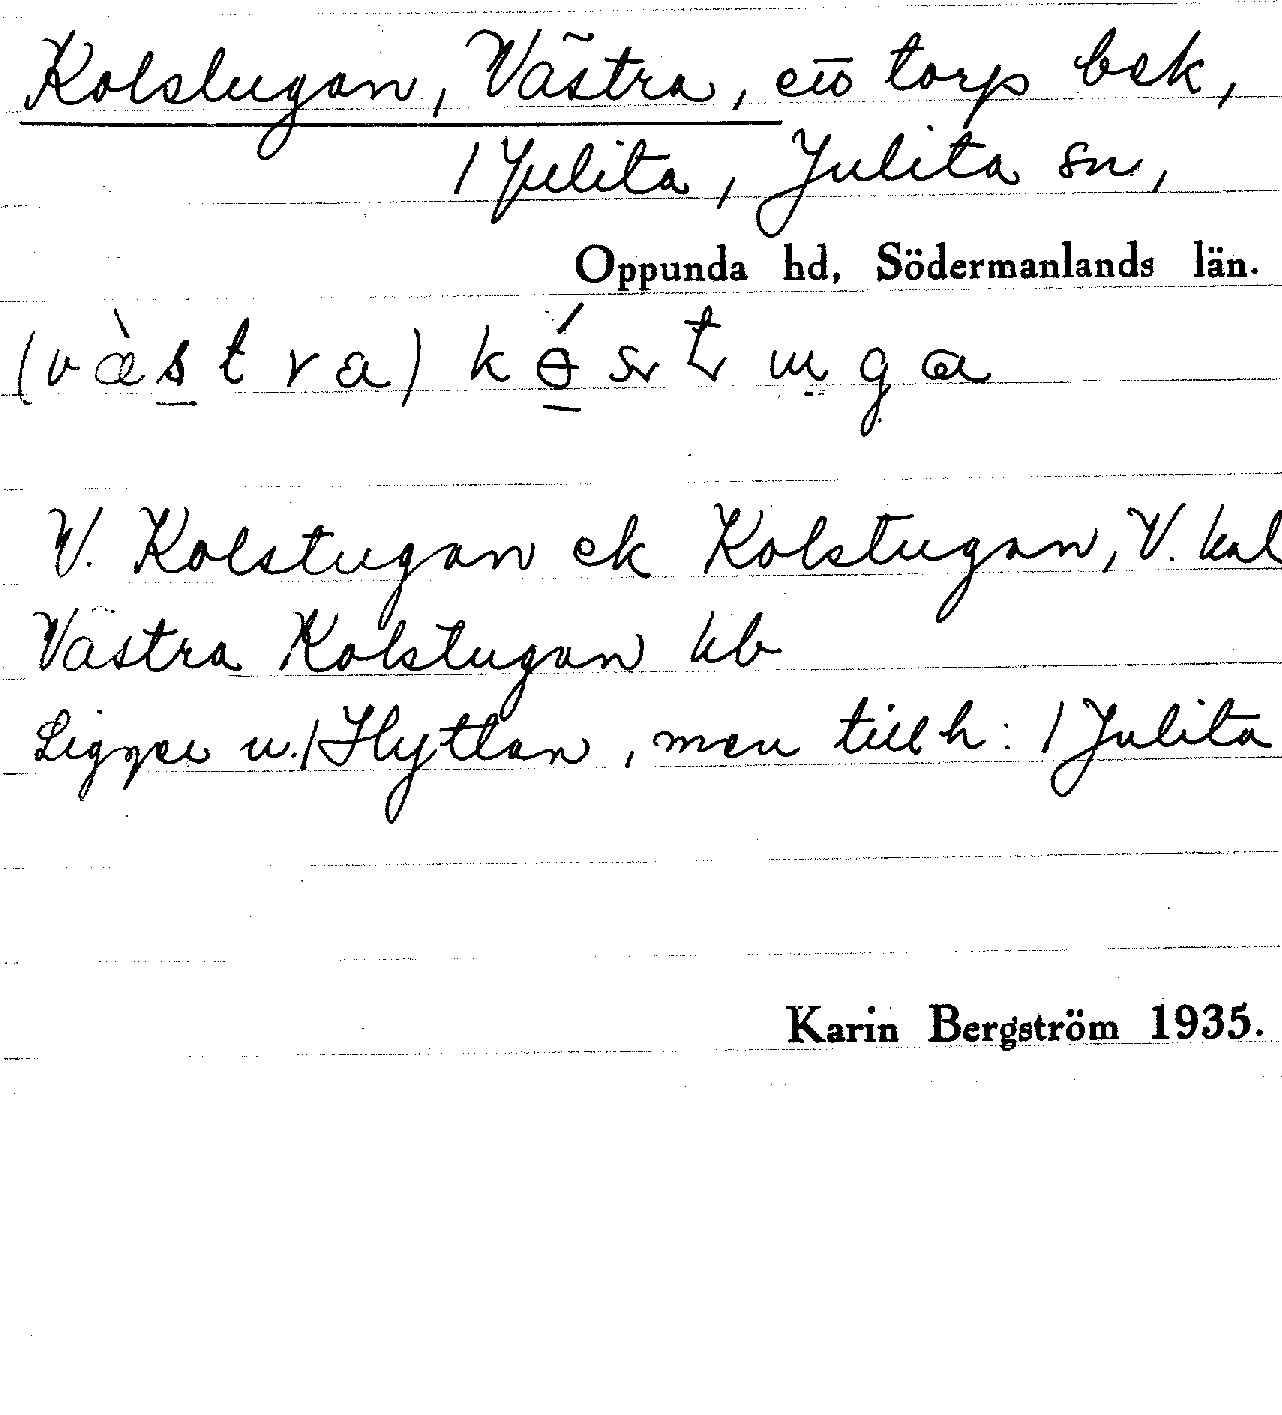 Kolstugan, Västra, ett torp bsk,
/ Julita, Julita sn,
Oppunda hd, Södermanlands län.
(væ̀stra)
V. Kolstugan ek Kolstugan, V. kal
Västra Kolstugan kb
Ligger u. / Hyttan, men till h: / Julita
Karin Bergström 1935.